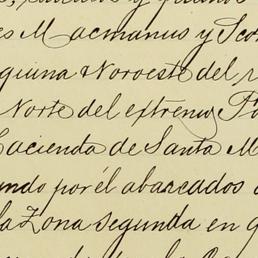 es Macmanus y Sco
quina Noroeste del r
Norte del extremo
Hacienda de Santa M
undo por él abarcados
la Zona segunda en q